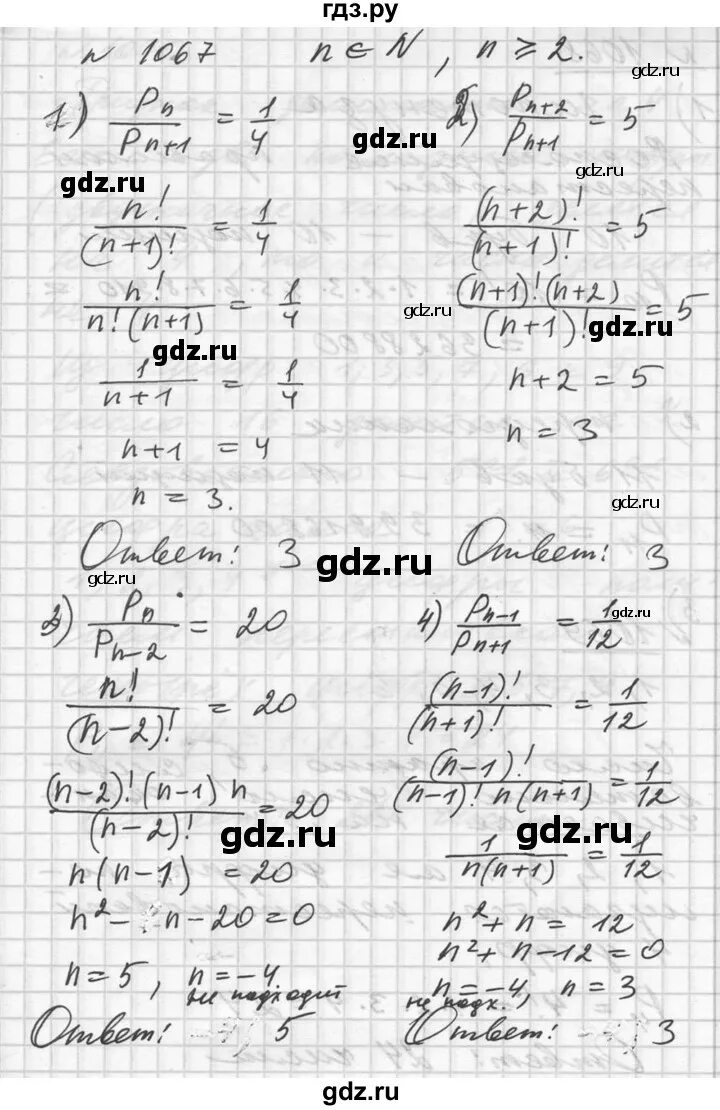 гдз.ру
№ 1067 n ∈ N, n ⩾ 2.
gdz.ru
1) P_n / P_{n+1} = 1/4
gdz.ru
n! / (n+1)! = 1/4
n! / n!(n+1) = 1/4
gdz.ru
1 / n+1 = 1/4
n+1 = 4
n = 3.
Ответ: 3
gdz.ru
2) P_{n+2} / P_{n+1} = 5
gdz.ru
(n+2)! / (n+1)! = 5
gdz.ru
(n+1)!(n+2) / (n+1)! = 5
gdz.ru
n+2 = 5
n = 3
gdz.ru
Ответ: 3
gdz.ru
3) P_n / P_{n-2} = 20
n! / (n-2)! = 20
(n-2)!(n-1) n / (n-2)! = 20
gdz.ru
n(n-1) = 20
n² - n - 20 = 0
n = 5, n = -4
не подходит
Ответ: 5
4) P_{n-1} / P_{n+1} = 1/12
gdz.ru
(n-1)! / (n+1)! = 1/12
(n-1)! / (n-1)! n(n+1) = 1/12
gdz.ru
1 / n(n+1) = 1/12
n² + n = 12
n² + n - 12 = 0
n = -4, n = 3
не подх.
Ответ: 3
gdz.ru